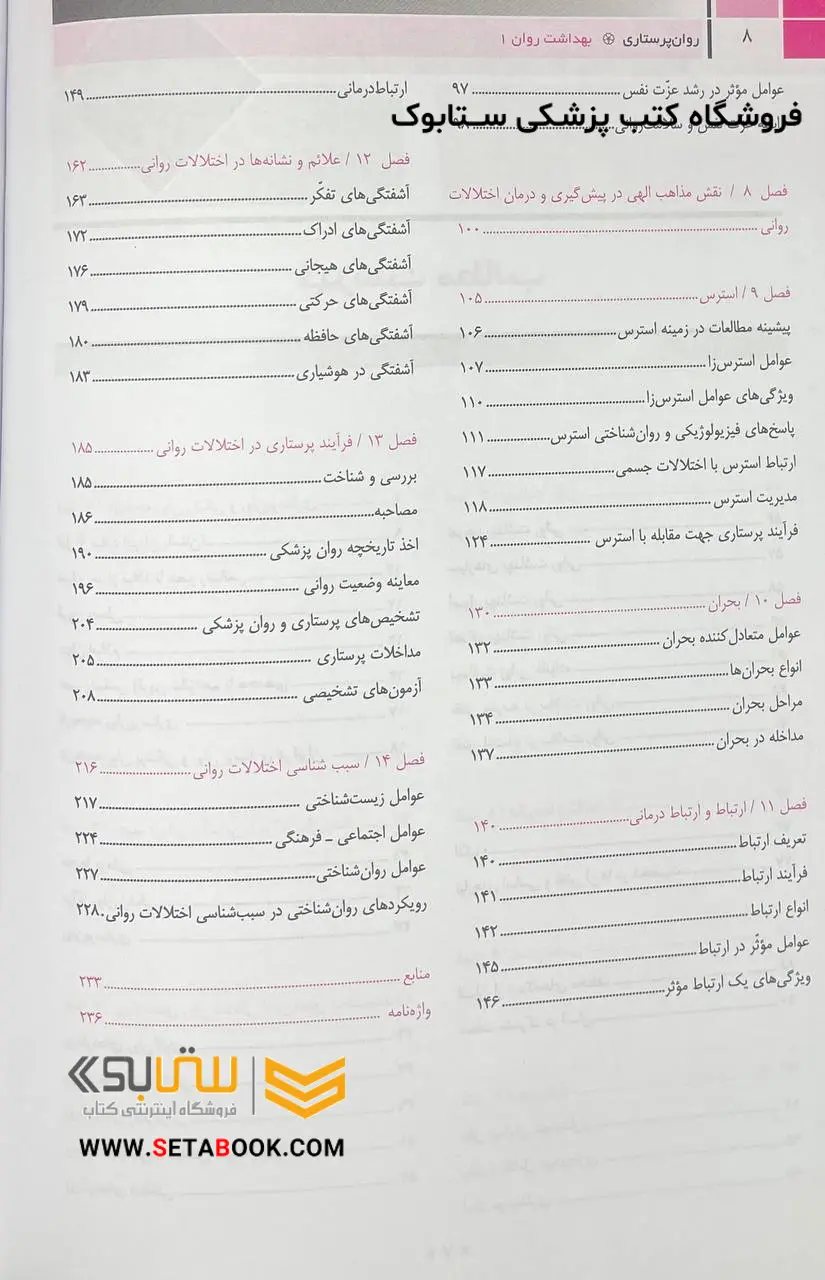 ۸
روان‌پرستاری ֍ بهداشت روان ۱
عوامل مؤثر در رشد عزّت نفس ۹۷
فروشگاه کتب پزشکی ستابوک
فصل ۸ / نقش مذاهب الهی در پیش‌گیری و درمان اختلالات
روانی ۱۰۰
فصل ۹ / استرس ۱۰۵
پیشینه مطالعات در زمینه استرس ۱۰۶
عوامل استرس‌زا ۱۰۷
ویژگی‌های عوامل استرس‌زا ۱۱۰
پاسخ‌های فیزیولوژیکی و روان‌شناختی استرس ۱۱۱
ارتباط استرس با اختلالات جسمی ۱۱۷
مدیریت استرس ۱۱۸
فرآیند پرستاری جهت مقابله با استرس ۱۲۴
فصل ۱۰ / بحران ۱۳۰
عوامل متعادل‌کننده بحران ۱۳۲
انواع بحران‌ها ۱۳۳
مراحل بحران ۱۳۴
مداخله در بحران ۱۳۷
فصل ۱۱ / ارتباط و ارتباط درمانی ۱۴۰
تعریف ارتباط ۱۴۰
فرآیند ارتباط ۱۴۱
انواع ارتباط ۱۴۲
عوامل مؤثّر در ارتباط ۱۴۵
ویژگی‌های یک ارتباط مؤثر ۱۴۶
ارتباط‌درمانی ۱۴۹
فصل ۱۲ / علائم و نشانه‌ها در اختلالات روانی ۱۶۲
آشفتگی‌های تفکّر ۱۶۳
آشفتگی‌های ادراک ۱۷۲
آشفتگی‌های هیجانی ۱۷۶
آشفتگی‌های حرکتی ۱۷۹
آشفتگی‌های حافظه ۱۸۰
آشفتگی در هوشیاری ۱۸۳
فصل ۱۳ / فرآیند پرستاری در اختلالات روانی ۱۸۵
بررسی و شناخت ۱۸۵
مصاحبه ۱۸۶
اخذ تاریخچه روان پزشکی ۱۹۰
معاینه وضعیت روانی ۱۹۶
تشخیص‌های پرستاری و روان پزشکی ۲۰۴
مداخلات پرستاری ۲۰۵
آزمون‌های تشخیصی ۲۰۸
فصل ۱۴ / سبب شناسی اختلالات روانی ۲۱۶
عوامل زیست‌شناختی ۲۱۷
عوامل اجتماعی ـ فرهنگی ۲۲۴
عوامل روان‌شناختی ۲۲۷
رویکردهای روان‌شناختی در سبب‌شناسی اختلالات روانی ۲۲۸
منابع ۲۳۳
واژه‌نامه ۲۳۶
ستابوک
فروشگاه اینترنتی کتاب
WWW.SETABOOK.COM